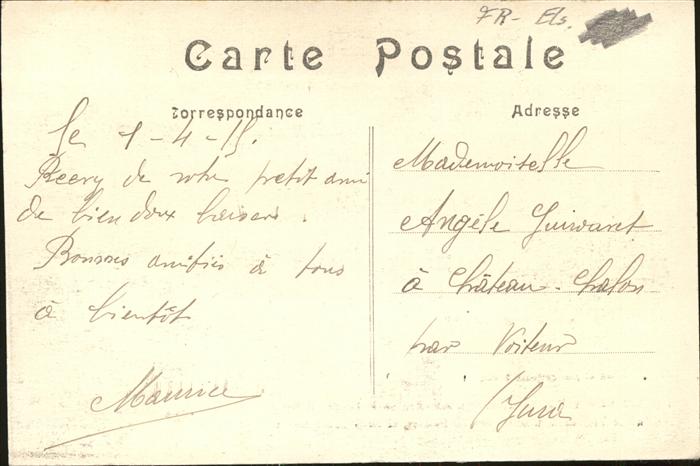 FR- Els.
Carte Poștale
Correspondance
Le 1-4-15.
Recev de votre petit ami
de bien doux baisers.
Bonnes amitiés à tous
à bientôt
Maurice
Adresse
Mademoiselle
Angèle
à Château-Chalon
par Voiteur
/Jura